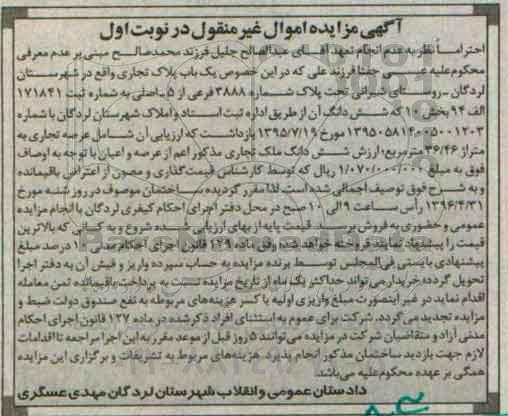 آگهی مزایده اموال غیرمنقول در نوبت اول
احتراماً نظر به عدم انجام تعهد آقای عبدالصالح جلیل فرزند محمدصالح مبنی بر عدم معرفی
محکوم‌علیه عیسی جفتا فرزند علی که در این خصوص یک باب پلاک تجاری واقع در شهرستان
لردگان -روستای شیرانی تحت پلاک شماره ۳۸۸۸ فرعی از ۵-اصلی به شماره ثبت ۱۷۱۸۴۱
الف ۹۴ بخش ۱۰ که شش دانگ آن از طریق اداره ثبت اسناد و املاک شهرستان لردگان با شماره
۱۳۹۵۰۵۸۱۴۰۰۵۰۰۱۲۰۳ مورخ ۱۳۹۵/۷/۱۹ بازداشت که ارزیابی آن شامل عرصه تجاری به
متراژ ۳۶/۴۶ مترمربع؛ ارزش شش دانگ ملک تجاری مذکور اعم از عرصه و اعیان با توجه به اوصاف
فوق به مبلغ ۱/۰۷۰/۰۰۰/۰۰۰ ریال که توسط کارشناس قیمت‌گذاری و مصون از اعتراض باقیمانده
و به شرح فوق توصیف اجمالی شده است. لذا مقرر گردیده ساختمان موصوف در روز شنبه مورخ
۱۳۹۶/۴/۳۱ رأس ساعت ۹ الی ۱۰ صبح در محل دفتر اجرای احکام کیفری لردگان با انجام مزایده
عمومی و حضوری به فروش برسد. قیمت پایه از بهای ارزیابی شده شروع و به کسانی که بالاترین
قیمت را پیشنهاد نمایند فروخته خواهد شد وفق ماده ۱۲۹ قانون اجرای احکام مدنی ۱۰ درصد مبلغ
پیشنهادی بایستی فی‌المجلس توسط برنده مزایده به حساب سپرده واریز و فیش آن به دفتر اجرا
تحویل گردد. خریدار می‌تواند حداکثر یک ماه از تاریخ مزایده نسبت به پرداخت باقیمانده ثمن معامله
اقدام نماید در غیر اینصورت مبلغ واریزی اولیه با کسر هزینه‌های مربوطه به نفع صندوق دولت ضبط و
مزایده تجدید می‌گردد. شرکت برای عموم به استثنای افراد ذکر شده در ماده ۱۲۷ قانون اجرای احکام
مدنی آزاد و متقاضیان شرکت در مزایده می‌توانند ۵ روز قبل از موعد مقرر به این اجرا مراجعه تا اقدامات
لازم جهت بازدید ساختمان مذکور انجام پذیرد. هزینه‌های مربوط به تشریفات و برگزاری این مزایده
همگی بر عهده محکوم‌علیه می‌باشد.
دادستان عمومی و انقلاب شهرستان لردگان مهدی عسگری